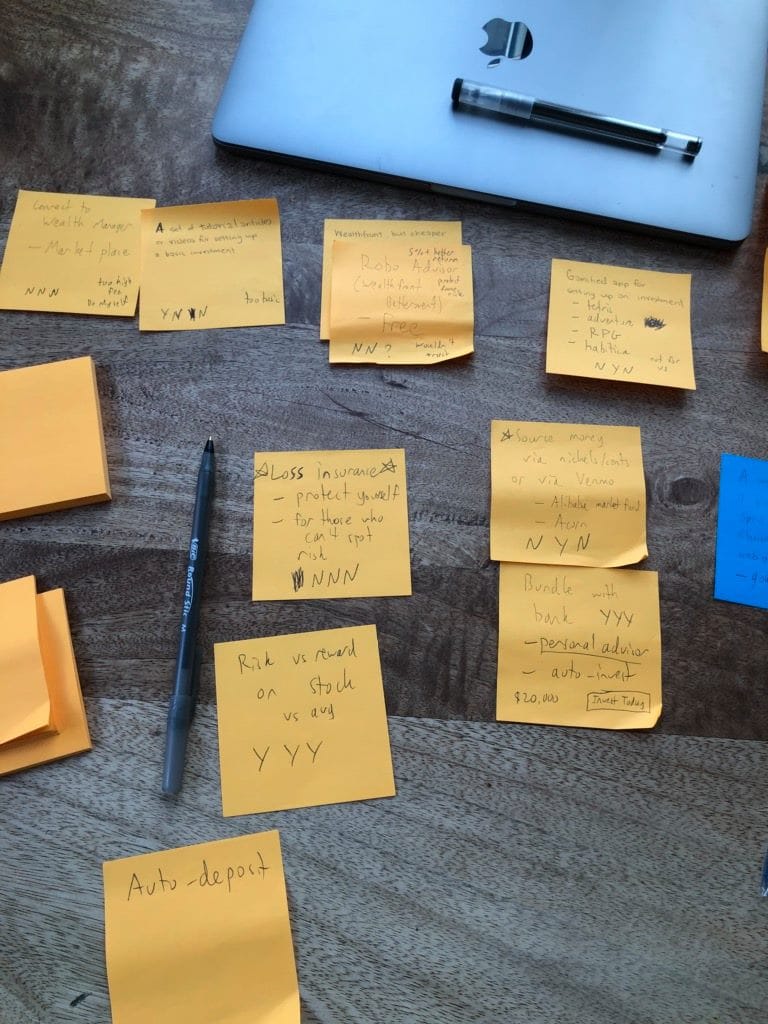 Connect to
Wealth Manager
- Market place
N N N
too high
fee
Do Myself
A set of tutorial articles
or videos for setting up
a basic investment
too basic
Y N N
Wealthfront, but cheaper
5%+ better
returns
Robo Advisor
(Wealthfront
Betterment)
- Free
N N ?
wouldn't
trust
Gamified app for
setting up an investment
- tetris
- adventure
- RPG
- habitica
not for
us
N Y N
Loss insurance
- protect yourself
- for those who
can't spot
risk
N N N
Source money
via nickels/cents
or via Venmo
- Alibaba market fund
- Acorn
N Y N
Bundle with
bank Y Y Y
- personal advisor
- auto-invest
$20,000
Invest Today
Risk vs reward
on stock
vs avg
Y Y Y
BIC Round Stic M
Auto-deposit